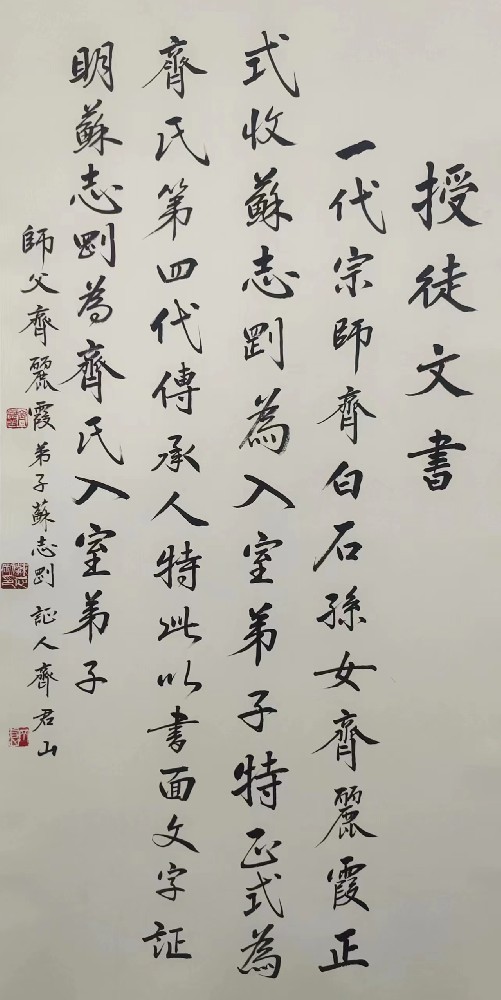 授徒文書
一代宗師齊白石孫女齊麗霞正
式收蘇志剛為入室弟子特正式為
齊氏第四代傳承人特此以書面文字証
明蘇志剛為齊氏入室弟子
師父齊麗霞弟子蘇志剛 証人齊君山